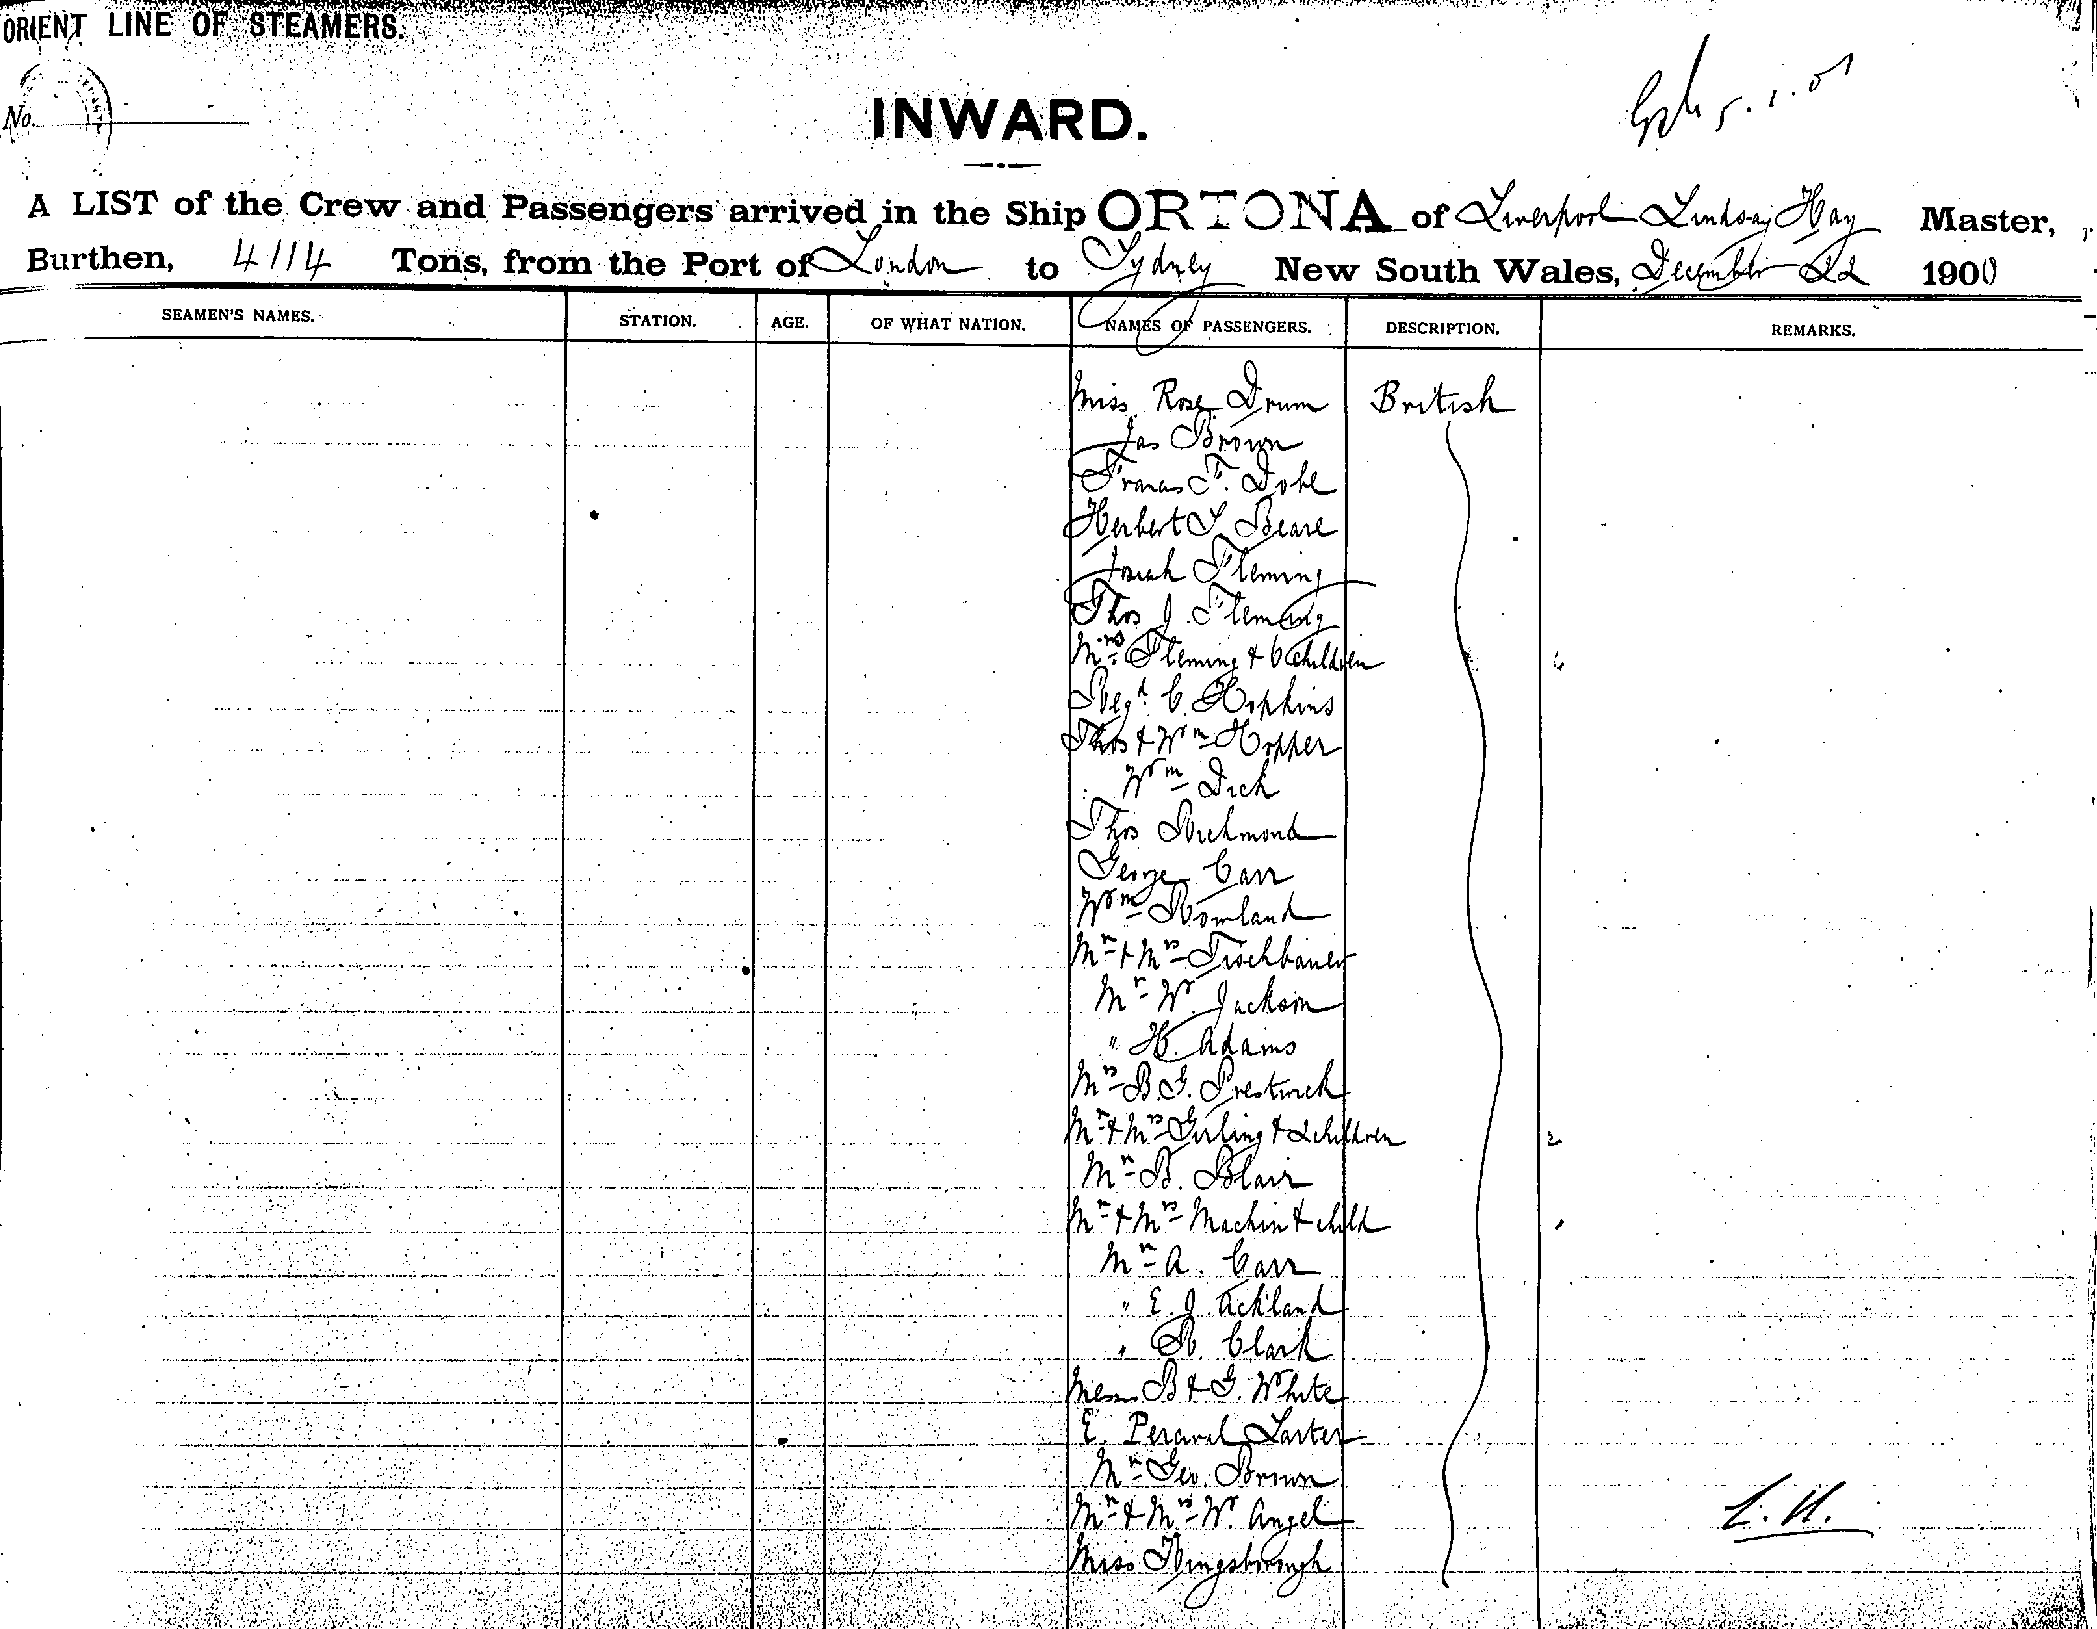 ORIENT LINE OF STEAMERS.
No.
5.1.01
INWARD.
A LIST of the Crew and Passengers arrived in the Ship ORTONA of Liverpool Lindsay Hay Master,
Burthen, 4114 Tons, from the Port of London to Sydney New South Wales, December 22 1900
SEAMEN'S NAMES. STATION. AGE. OF WHAT NATION. NAMES OF PASSENGERS. DESCRIPTION. REMARKS.
Miss Rose Drum British
Jas Brown
Francis F. Dobe
Herbert S. Beare
Josiah Fleming
Thos J. Fleming
Mrs Fleming & 6 children
Regd C. Hopkins
Thos & Wm Hopper
Wm Dick
Thos Richmond
George Carr
Wm Rowland
Mr & Mrs
Mr W. Jackson
" H. Adams
Mrs B. G. Prestwich
Mr & Mrs Girling & 2 children 2
Mr B. Blair
Mr & Mrs Machin & child
Mr A. Carr
" E. J. Ackland
" R. Clark
Messrs B & G. White
E. Percival Larter
Mr Geo. Brown
Mr & Mrs W. Angel L.H.
Miss Kingsborough